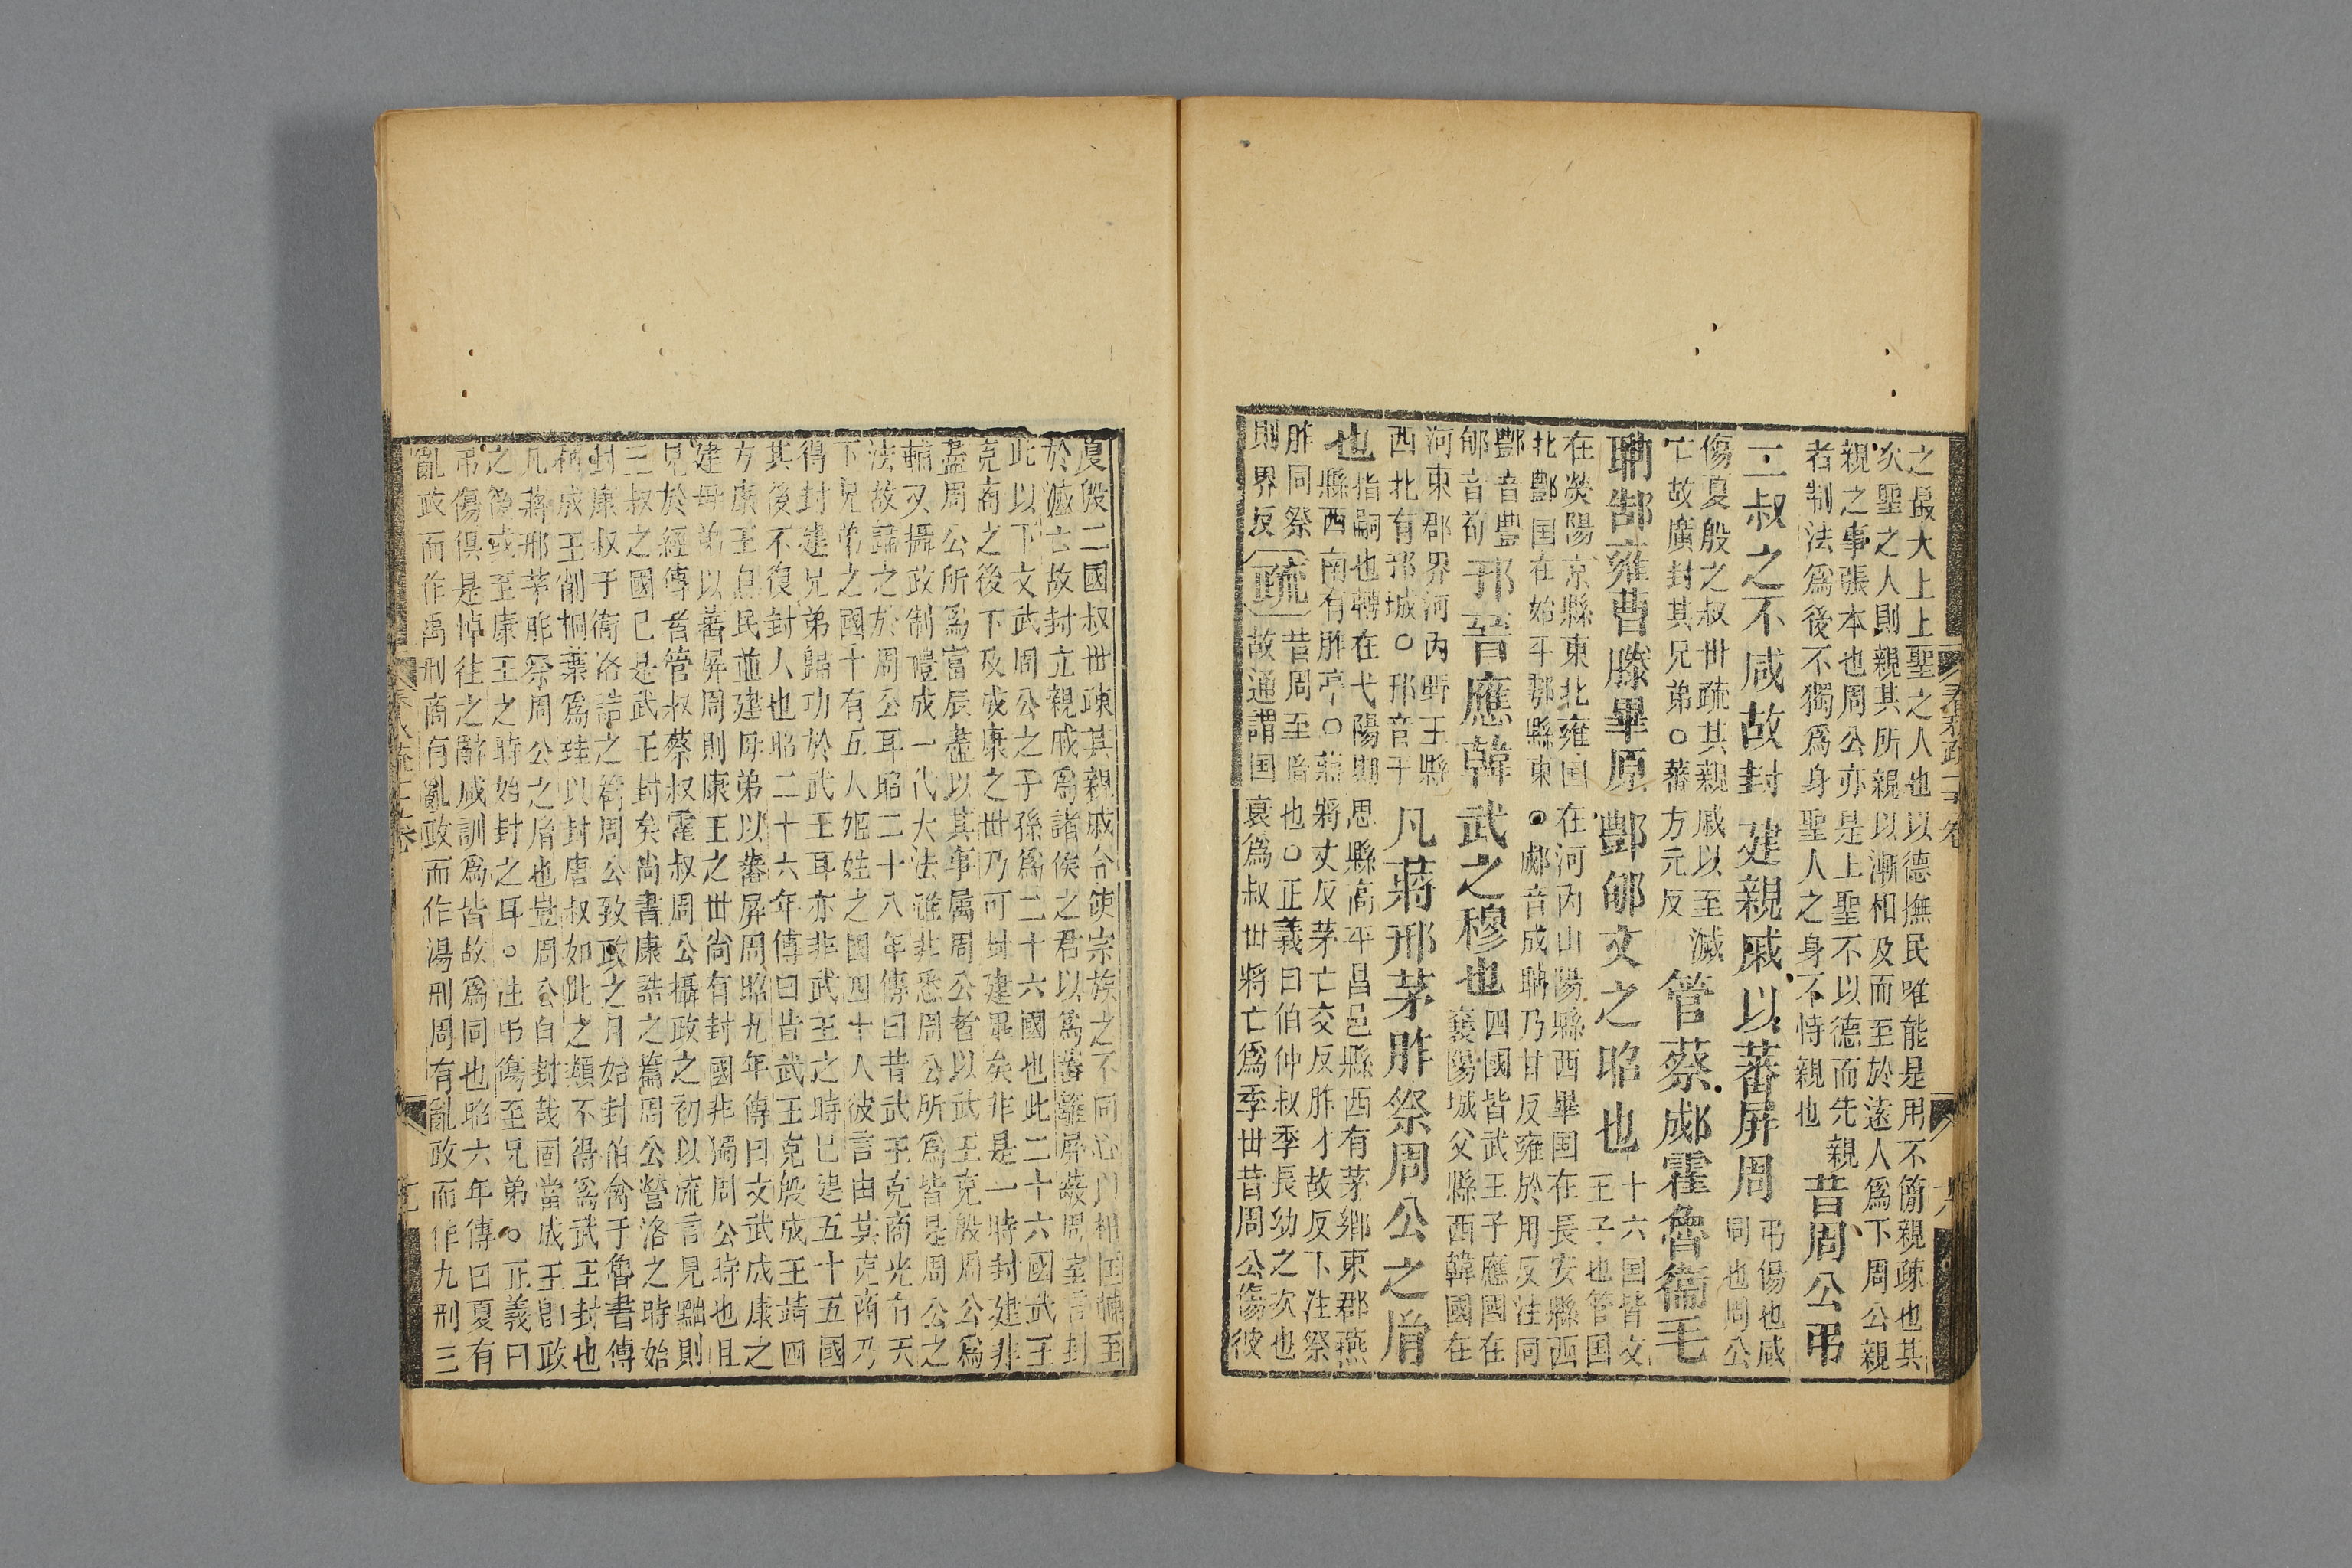 之最大上上聖之人也以德撫民唯能是用不簡親疎也其
次聖之人則親其所親以漸相及而至於遠人爲下周公親
親之事張本也周公亦是上聖不以德而先親
者制法爲後不獨爲身聖人之身不恃親也
昔周公弔
二叔之不咸故封建親戚以蕃屏周
弔傷也咸
同也周公
傷夏殷之叔世疏其親戚以至滅
亡故廣封其兄弟○蕃方元反
管蔡郕霍魯衛毛
聃郜雍曹滕畢原酆郇文之昭也
十六国皆文
王子也管国
在滎陽京縣東北雍国在河内山陽縣西畢国在長安縣西
北酆国在始平鄠縣東○郕音成聃乃甘反雍於用反注同
酆音豐
郇音荀
邘晉應韓武之穆也
四國皆武王子應國在
襄陽城父縣西韓國在
河東郡界河内野王縣
西北有邘城○邘音于
凡蔣邢茅胙祭周公之胤
也
指嗣也蔣在弋陽期思縣高平昌邑縣西有茅鄉東郡燕
縣西南有胙亭○蔣將丈反茅亡交反胙才故反下注祭
胙同祭
則界反
疏
昔周至胤也○正義曰伯仲叔季長幼之次也
故通謂国衰爲叔世將亡爲季世昔周公傷彼
夏殷二國叔世疎其親戚令使宗族之不同心以相匡輔至
於滅亡故封立親戚爲諸侯之君以爲蕃籬屏蔽周室言封
此以下文武周公之子孫爲二十六國也此二十六國武王
克商之後下及成康之世乃可封建畢矣非是一時封建非
盡周公所爲富辰盡以其事属周公者以武王克殷周公爲
輔又攝政制禮成一代大法雖非悉周公所爲皆是周公之
法故歸之於周公耳昭二十八年傳曰昔武王克商光有天
下兄弟之國十有五人姬姓之國四十人彼言由其克商乃
得封建兄弟歸功於武王耳亦非武王之時已建五十五國
其後不復封人也昭二十六年傳曰昔武王克殷成王靖四
方康王息民並建母弟以蕃屏周昭九年傳曰文武成康之
建母弟以蕃屏周則康王之世尚有封國非獨周公時也且
見於經傳者管叔蔡叔霍叔周公攝政之初以流言見黜則
三叔之國已是武王封矣尚書康誥之篇周公營洛之時始
封康叔于衛洛誥之篇周公致政之月始封伯禽于魯書傳
稱成王削桐葉爲珪以封唐叔如此之類不得爲武王封也
凡蔣邢茅胙祭周公之胤也豈周公自封哉固當成王即政
之後或至康王之時始封之耳○注弔傷至兄弟○正義曰
弔傷俱是悼往之辭咸訓爲皆故爲同也昭六年傳曰夏有
亂政而作禹刑商有亂政而作湯刑周有亂政而作九刑三